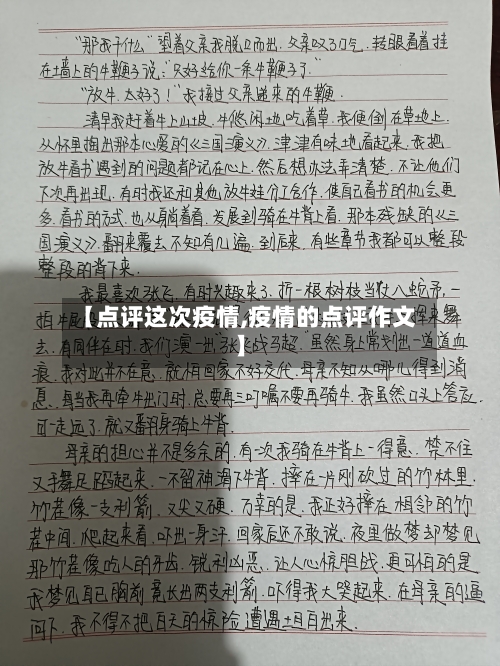 "那我干什么"望着父亲我脱口而出.父亲叹了口气.转眼看着挂
在土墙上的牛鞭子说:"只好给你一条牛鞭子了."
"放牛.太好了!"我接过父亲递来的牛鞭.
清早我赶着牛上山坡.牛悠闲地吃着草.我便倒在草地上.
从怀里掏出那本心爱的《三国演义》.津津有味地看起来.我把
放牛看书遇到的问题都记在心上.然后想办法弄清楚.不让他们
下次再出现.有时我还和其他放牛娃分工合作.使自己看书的机会更
多.看书的方式.也从躺着看.发展到骑在牛背上看.那本残缺的《三
国演义》.翻来覆去不知有几遍.到后来.有些章节我都可以整段
整段的背下来.
我最喜欢张飞.有时兴趣来了.折一根树枝当丈八蛇矛.一
【点评这次疫情,疫情的点评作文
】
去.有同伴在时.我们演一出张飞战马超.虽然身上常划出一道道血
痕.我对此并不在意.就怕回家不好交代.母亲不知从哪儿得到消
息.每当我再牵牛出门时.总要再三叮嘱不要再骑牛.我虽然口头上答应.
可一走远了.就又翻身骑上牛背.
母亲的担心并不是多余的.有一次我骑在牛背上一得意.禁不住
又手舞足蹈起来.一不留神滑下牛背.摔在一片刚砍过的竹林里.
竹茬像一支利箭.又尖又硬.万幸的是.我正好摔在相邻的竹
茬中间.爬起来看.吓出一身汗.回家后还不敢说.夜里做梦却梦见
那竹茬像吃人的牙齿.锐利凶恶.让人心惊胆战.更可怕的是
我梦见自己胸前竟长出两支利箭.吓得我大哭起来.在母亲的逼
问下.我不得不把白天的惊险遭遇土白白出来.